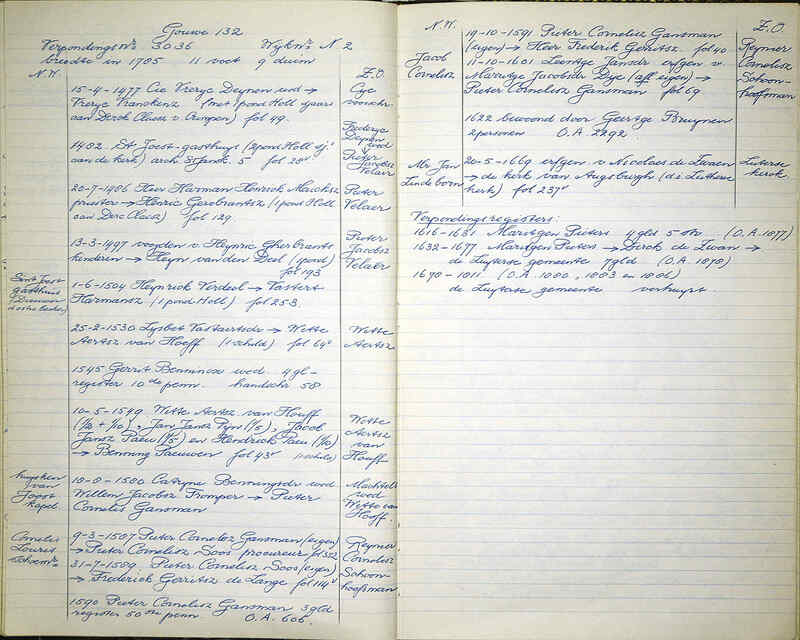 Gouwe 132
Verpondings Nr 3036 Wijk Nr N 2
breedte in 1785 11 voet 9 duim
N.W.
Z.O.
15-4-1477 Cie Vrerye Deynen wed →
Vrerye Vranckenz (met 1 pond Holl jaars
aan Derck Claesz v. Crimpen) fol 49.
1482 St Joost-gasthuys (2 pond Holl sj.
aan de kerk) arch. St Janck. 5 fol 20v
Frederye
Deynen
wed
↓
Pieter
Jacobsz
Velaer
20-7-1486 Heer Harman Henrick Maicksz
priester → Henric Gerebrantsz (1 pond Holl
aan Derc Claesz) fol 129.
Pieter
Velaer
13-3-1497 voogden v. Heynric Gherbrants
kinderen → Heyn van den Deel (1 pond)
fol 193
Pieter
Jacobsz
Velaer
Sint Joost
gasthuis
1-6-1504 Heynrick Verdeel → Vastert
Harmansz (1 pond Holl) fol 253.
25-2-1530 Lysbet Vastaertsdr → Wette
Aertsz van Hoeff (1 schild) fol 64v
Wette
Aertsz
1545 Gerrit Benninck wed. 4 gl-
register 10de penn. handschr 58
10-5-1549 Witte Aertsz van Houff
(1/2 + 1/10), Jan Jansz Pyn (1/5), Jacob
Jansz Paeu (1/5) en Hendrick Paeu (1/10)
→ Benning Pauwen fol 43v (1 schild)
Wette
Aertsz
van
Houff
huysken
van
Joost
kapel
18-8-1580 Catryne Benningsdr wed
Willem Jacobsz Tromper → Pieter
Cornelis Gansman
Machtelt
wed
Wette van
Hoeff.
Cornelis
Louris
schoenmr
9-3-1587 Pieter Cornelisz Gansman (eigen)
→ Pieter Cornelisz Soos procureur fol 352
31-7-1589 Pieter Cornelisz Soos (eigen)
→ Frederick Gerritsz de Lange fol 114v
Reymer
Cornelisz
Schoon-
hoofsman
1590 Pieter Cornelisz Gansman 3 gld
register 50ste penn. O.A. 606.
N.W.
Z.O.
Jacob
Cornelisz
19-10-1591 Pieter Cornelisz Gansman
(eigen) → Heer Frederik Gerritsz. fol 40
11-10-1601 Leentge Jansdr erfgen v.
Marritge Jacobsdr Dye (aff. eigen) →
Pieter Cornelisz Gansman fol 69
Reymer
Cornelisz
Schoon-
hoofsman
1622 bewoond door Geertge Bruynen
2 personen O.A. 2292.
Mr Jan
Lindeborn
20-5-1669 erfgen v. Nicolaes de Swaen
→ de kerk van Augsburgh (d.i. Luterse
kerk) fol 257v
Luterse
kerk.
Verpondingsregisters:
1616-1631 Marritgen Pieters 4 gld 5 st. (O.A. 1877)
1632-1677 Marritgen Pieters → Dirck de Swan →
de Luyterse gemeente 7 gld (O.A. 1878)
1678-1811 (O.A. 1880, 1883 en 1886)
de Luyterse gemeente verhuyrt.